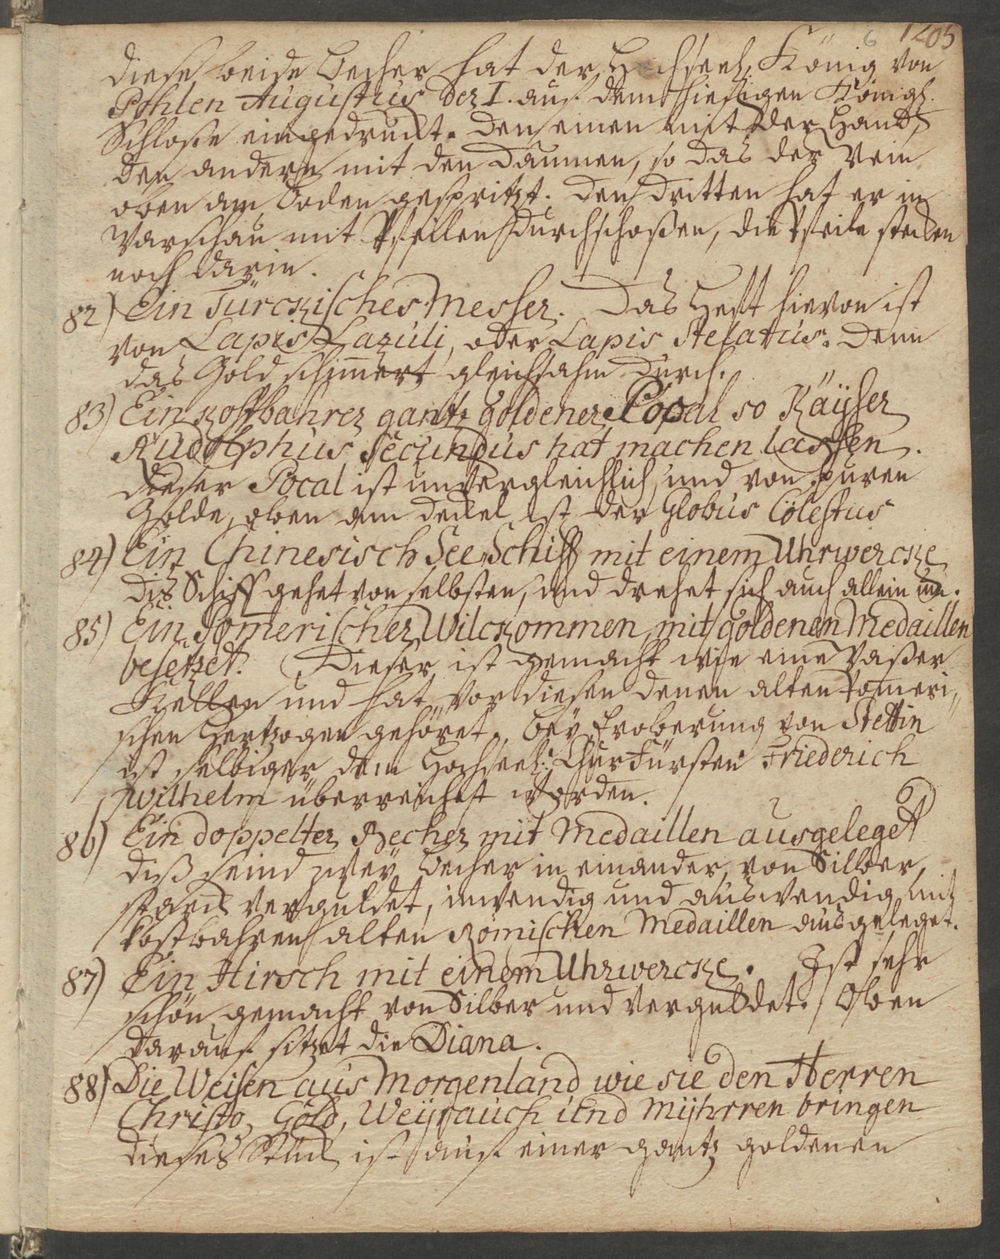 6 1205
diese beide Becher hat der Hochseel. König von
Pohlen Augustus der I. auf dem hiesigen Königl.
Schloße eingedruckt. Den einen mit der Hand,
den andern mit den Daumen, so das der Wein
oben am Boden gespritzt. Den dritten hat er in
Warschau mit Pfeilen durchschoßen, die Pfeile stecken
noch darin.
82) Ein Türckisches Messer. Das Heft hievon ist
von Lapis Lazuli, oder Lapis Stelatus. Denn
das Gold schimmert gleichsahm durch.
83) Ein kostbahrer gantz goldener Pocal so Käyser
Rudolphus Secundus hat machen lassen.
Dieser Pocal ist unvergleichlich, und von puren
Golde, oben am Deckel ist der Globus Cölestus
84) Ein Chinesisch See Schiff mit einem Uhrwercke
Dis Schiff gehet von selbsten, und drehet sich auch allein um.
85) Ein Pomerischer Wilckommen mit goldenen Medaillen
besetzet. Dieser ist gemacht wie eine Waßer
Kellen und hat vor diesen denen alten Pomeri„
schen Hertzogen gehöret. Bey Eroberung von Stettin
ist selbiger dem Hochseel: ChurFürsten Friederich
Wilhelm überreichet worden.
86) Ein doppelter Becher mit Medaillen ausgeleget
Diß seind zwey Becher in einander, von Silber,
starck verguldet, inwendig und auswendig mit
kostbahren alten Römischen Medaillen ausgeleget.
87) Ein Hirsch mit einem Uhrwercke. Ist sehr
schön gemacht von Silber und verguldet. Oben
darauf sitzet die Diana.
88) Die Weisen aus Morgenland wie sie den Herren
Christo, Gold, Weyrauch und Mijhrren bringen
dieses Stück ist aus einer gantz goldenen